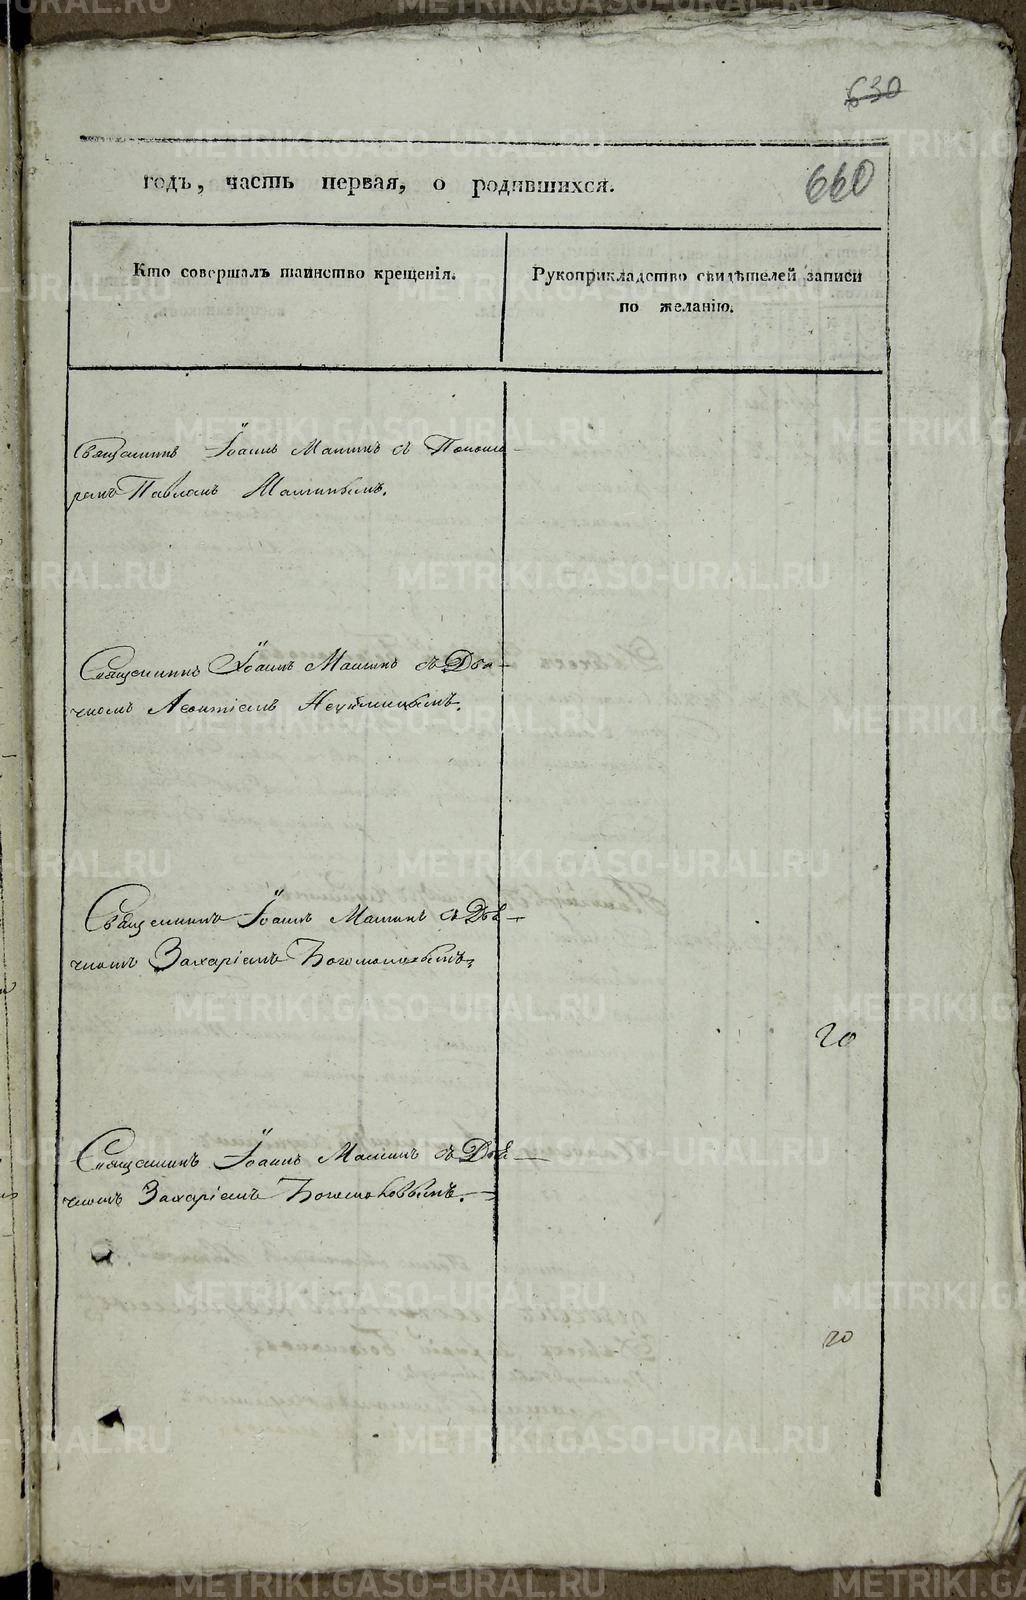 630
660
годъ, часть первая, о родившихся.
Кто совершалъ таинство крещенія.
Рукоприкладство свидѣтелей записи
по желанію.
Священникъ Іоаннъ Маминъ съ Понома-
ремъ Павломъ Маминымъ.
Священникъ Іоаннъ Маминъ съ Дья-
чкомъ Леонтіемъ
Священникъ Іоаннъ Маминъ съ Дья-
чкомъ Захаріемъ Богомоловымъ.
20
Священникъ Іоаннъ Маминъ съ Дья-
чкомъ Захаріемъ Богомоловымъ.
20
METRIKI.GASO-URAL.RU